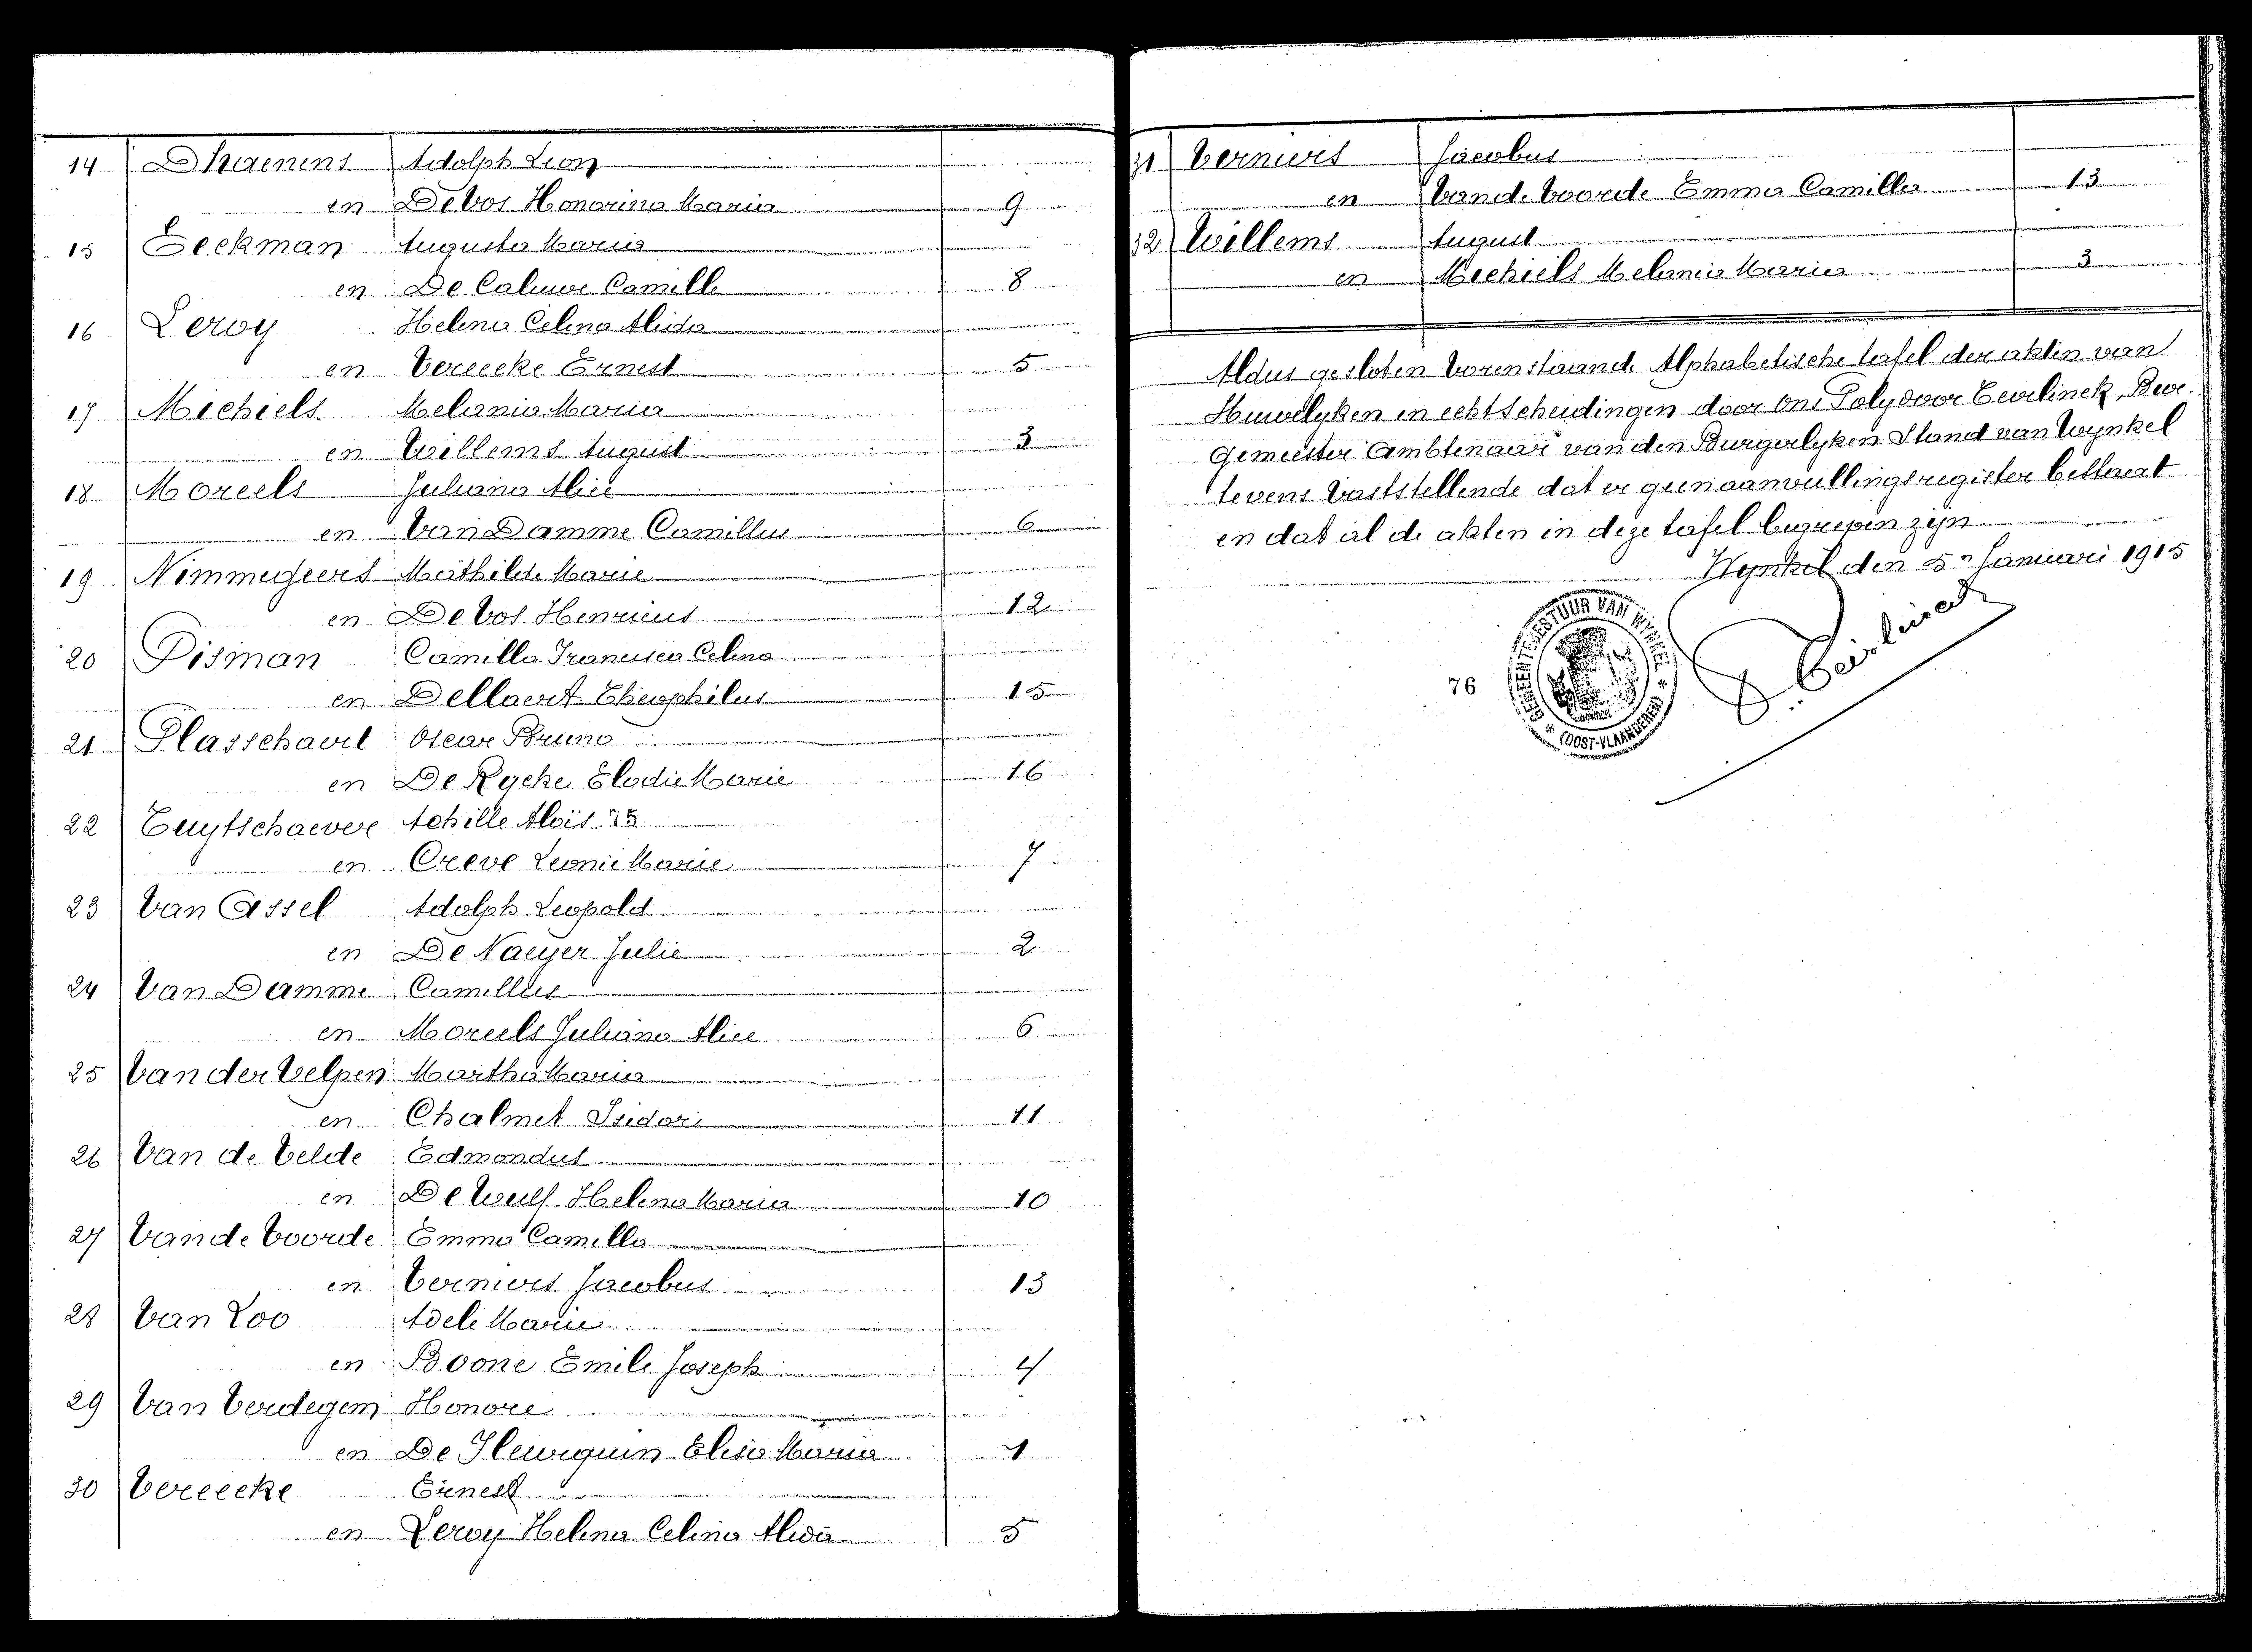 14 Dhaenens Adolph Leon
en De Vos Honorina Maria 9
15 Eeckman Augusta Maria
en De Caluwe Camille 8
16 Leroy Helena Celina Alida
en Vereecke Ernest 5
17 Michiels Melania Maria
en Willems August 3
18 Moreels Juliana Alice
en Van Damme Camillus 6
19 Nimmegeers Mathilde Marie
en De Vos Henricus 12
20 Pisman Camilla Francisca Celina
en Dellaert Theophilus 15
21 Plasschaert Oscar Bruno
en De Rycke Elodie Marie 16
22 Tuytschaever Achille Aloïs
en Creve Leonie Marie 7
23 Van Assel Adolph Leopold
en De Naeyer Julie 2
24 Van Damme Camillus
en Moreels Juliana Alice 6
25 Van der Velpen Martha Maria
en Chalmet Isidore 11
26 Van de Velde Edmondus
en De Wulf Helena Maria 10
27 Van de Voorde Emma Camilla
en Verniers Jacobus 13
28 Van Loo Adele Marie
en Boone Emile Joseph 4
29 Van Verdegem Honore
en De Elisa Maria 1
30 Vereecke Ernest
en Leroy Helena Celina Alida 5
31 Verniers Jacobus
en Van de Voorde Emma Camilla 13
32 Willems August
en Michiels Melania Maria 3
Aldus gesloten vorenstaande Alphabetische tafel der akten van
Huwelyken en echtscheidingen door ons Polydoor Bur-
gemeester Ambtenaar van den Burgerlyken Stand van Wynkel
tevens vaststellende dat er geen aanvullingsregister bestaat
en dat al de akten in deze tafel begrepen zijn
Wynkel den 5n Januari 1915
GEMEENTEBESTUUR VAN WYNKEL
(OOST-VLAANDEREN)
76